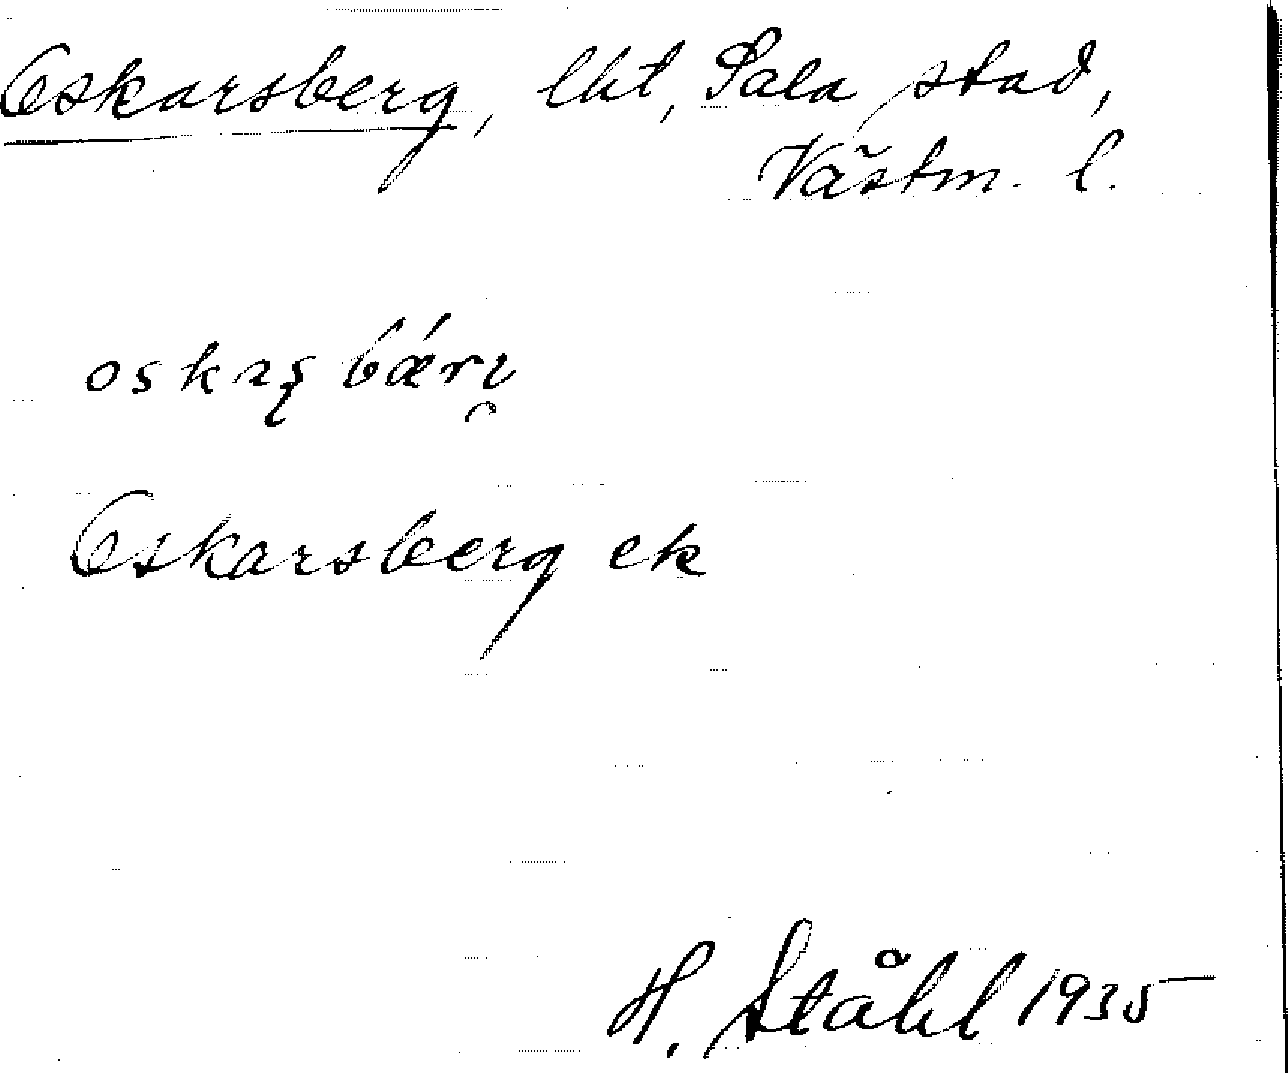 Oskarsberg, lht, Sala stad,
Västm. l.
oskaʂbǽrı̯
Oskarsberg ek
H. Ståhl 1935